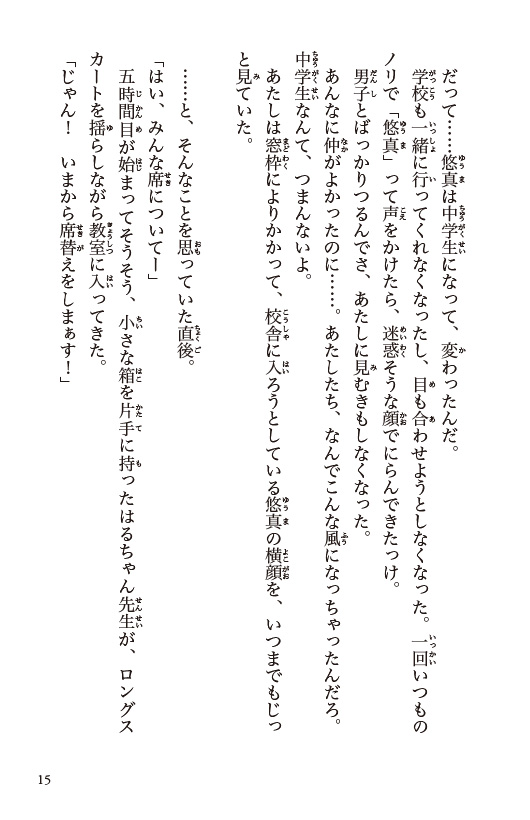 だって……悠真は中学生になって、変わったんだ。
学校も一緒に行ってくれなくなったし、目も合わせようとしなくなった。一回いつもの
ノリで「悠真」って声をかけたら、迷惑そうな顔でにらんできたっけ。
男子とばっかりつるんでさ、あたしに見むきもしなくなった。
あんなに仲がよかったのに……。あたしたち、なんでこんな風になっちゃったんだろ。
中学生なんて、つまんないよ。
あたしは窓枠によりかかって、校舎に入ろうとしている悠真の横顔を、いつまでもじっ
と見ていた。
……と、そんなことを思っていた直後。
「はい、みんな席についてー」
五時間目が始まってそうそう、小さな箱を片手に持ったはるちゃん先生が、ロングス
カートを揺らしながら教室に入ってきた。
「じゃん！　いまから席替えをしまぁす！」
15